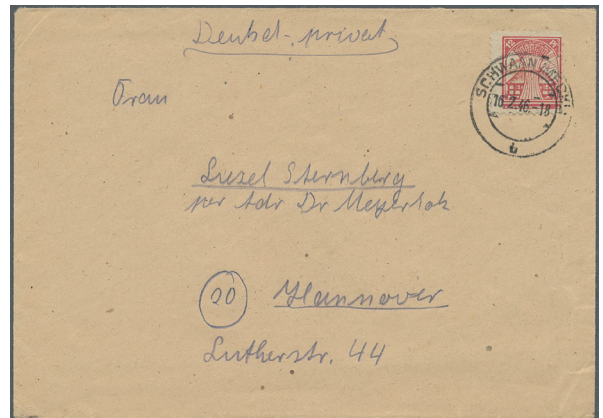 privat
SCHWAAN (MECKL)
16.2.46.-18
b
12 12
Frau
Luzel Sternberg
per Adr Dr Meyerlok
20 Hannover
Lutherstr. 44